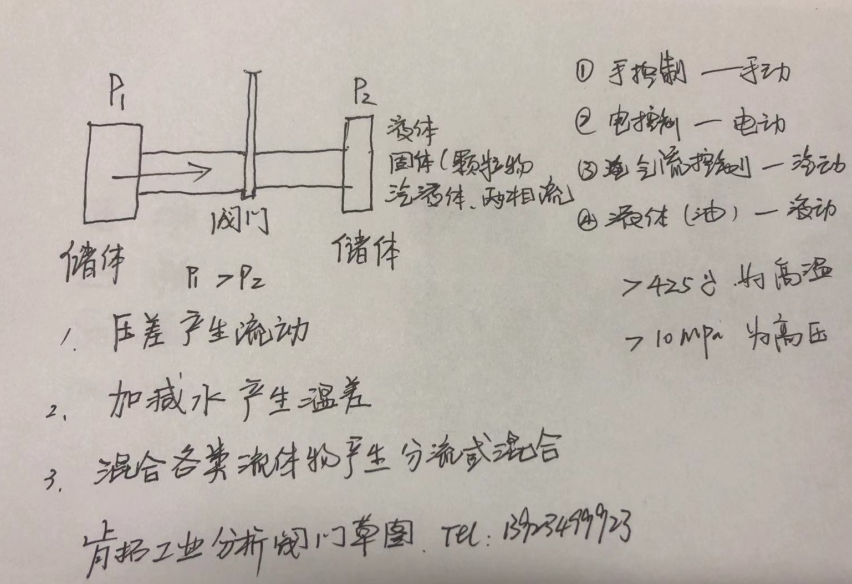 P₁
P₂
阀门
储体
储体
P₁ > P₂
液体
固体(颗粒物
汽液体、两相流)
① 手控制 — 手动
② 电控制 — 电动
③ 气流控制 — 汽动
④ 液体(油) — 液动
>425℃ 为高温
>10 MPa 为高压
1. 压差产生流动
2. 加减水产生温差
3. 混合各类流体物产生分流或混合
肯拓工业分析阀门草图. TEL: 13923499923